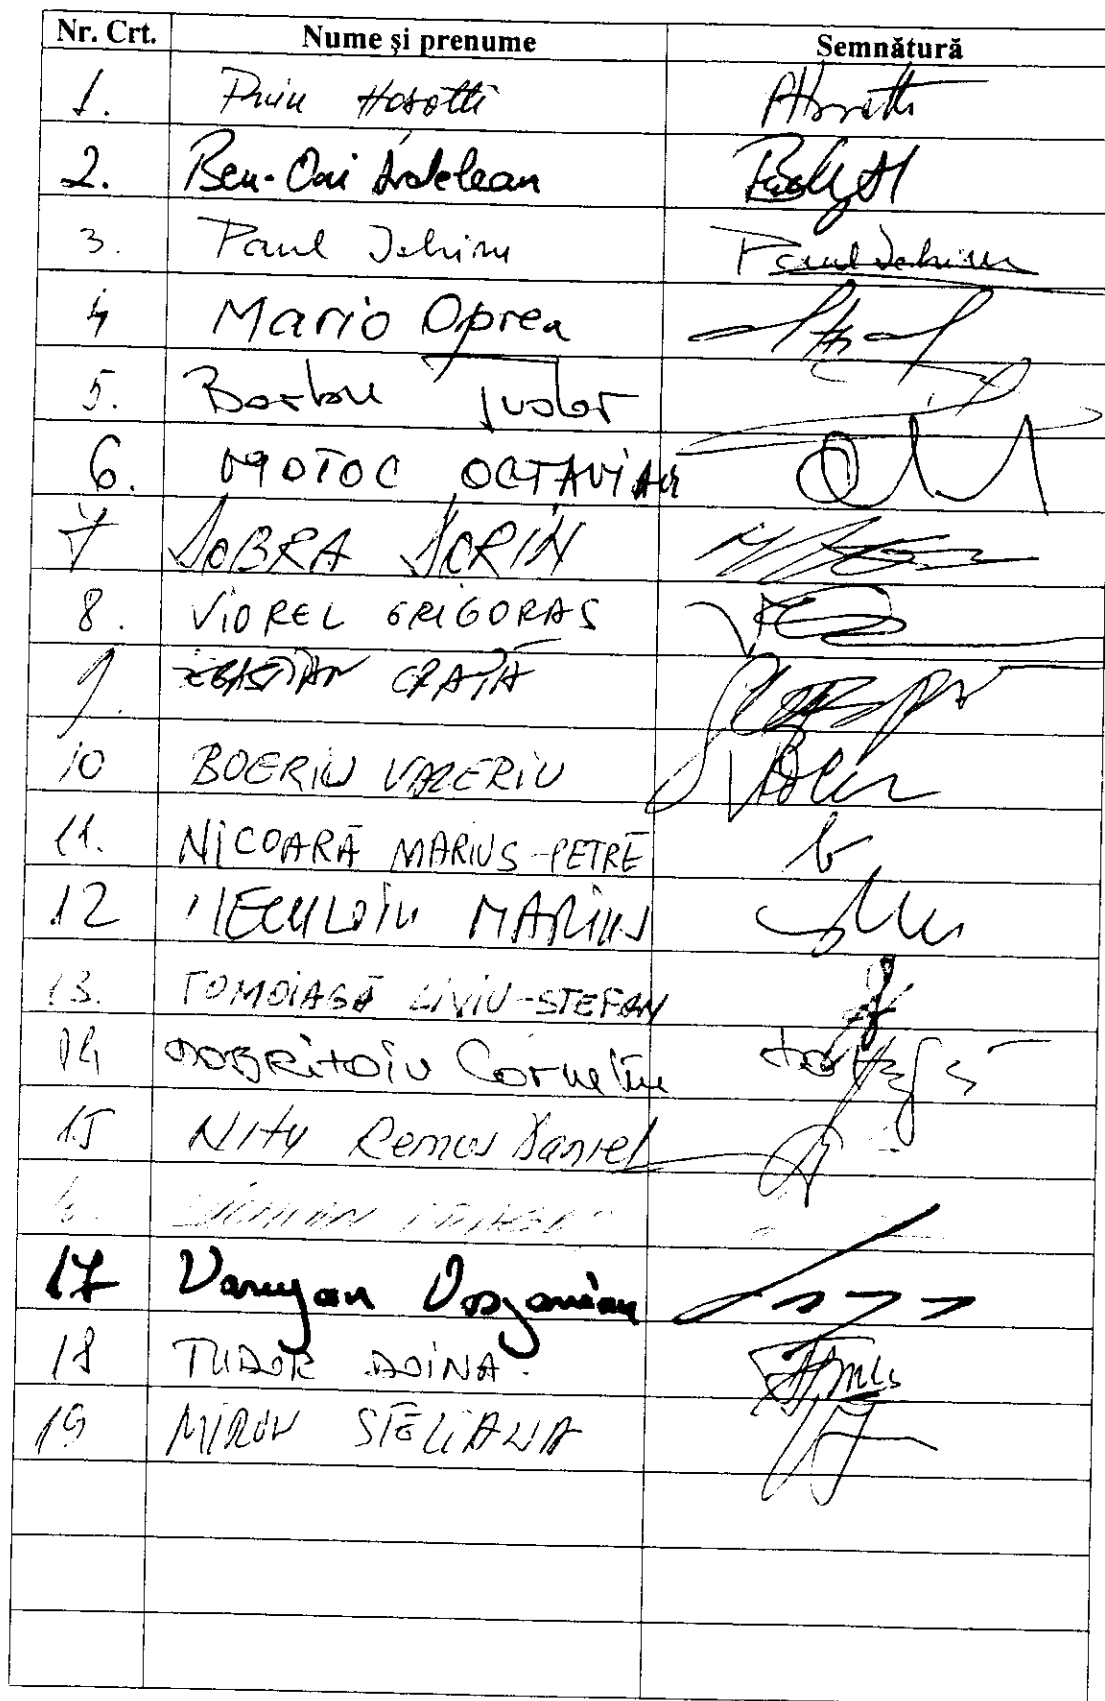 Nr. Crt. Nume și prenume Semnătură
1. Puiu Hasotti
2. Ben-Oni Ardelean
3. Paul Ichim Paul Ichim
4 Mario Oprea
5. Barbu Tudor
6. MOTOC OCTAVIAN
7 DOBRA DORIN
8. VIOREL GRIGORAS
9. CRAIA
10 BOERIU VALERIU
11. NICOARĂ MARIUS-PETRE
12 MARIUS
13. TOMOIAGĂ LIVIU-STEFAN
14 DOBRITOIU Corneliu
15 Nitu Remus Daniel
17 Varujan Vosganian
18 TUDOR DOINA.
19 MIRON STELIANA